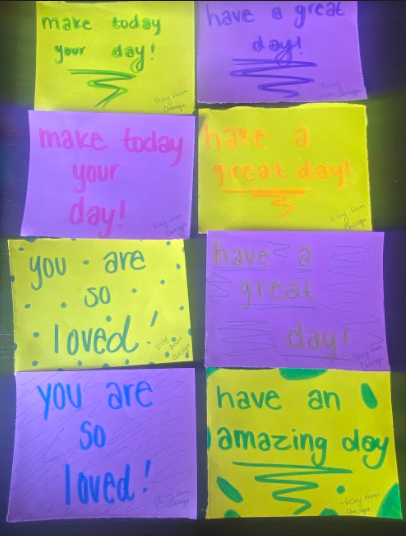 make today
your day!
have a great
day!
make today
your
day!
have a
great day!
you are
so
loved!
have a
great
day!
you are
so
loved!
have an
amazing day